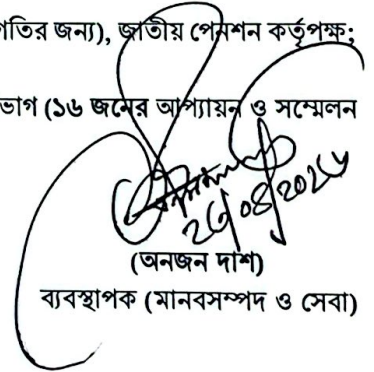 গতির জন্য), জাতীয় পেনশন কর্তৃপক্ষ;
ভাগ (১৬ জনের আপ্যায়ন ও সম্মেলন
(অনজন দাশ)
ব্যবস্থাপক (মানবসম্পদ ও সেবা)